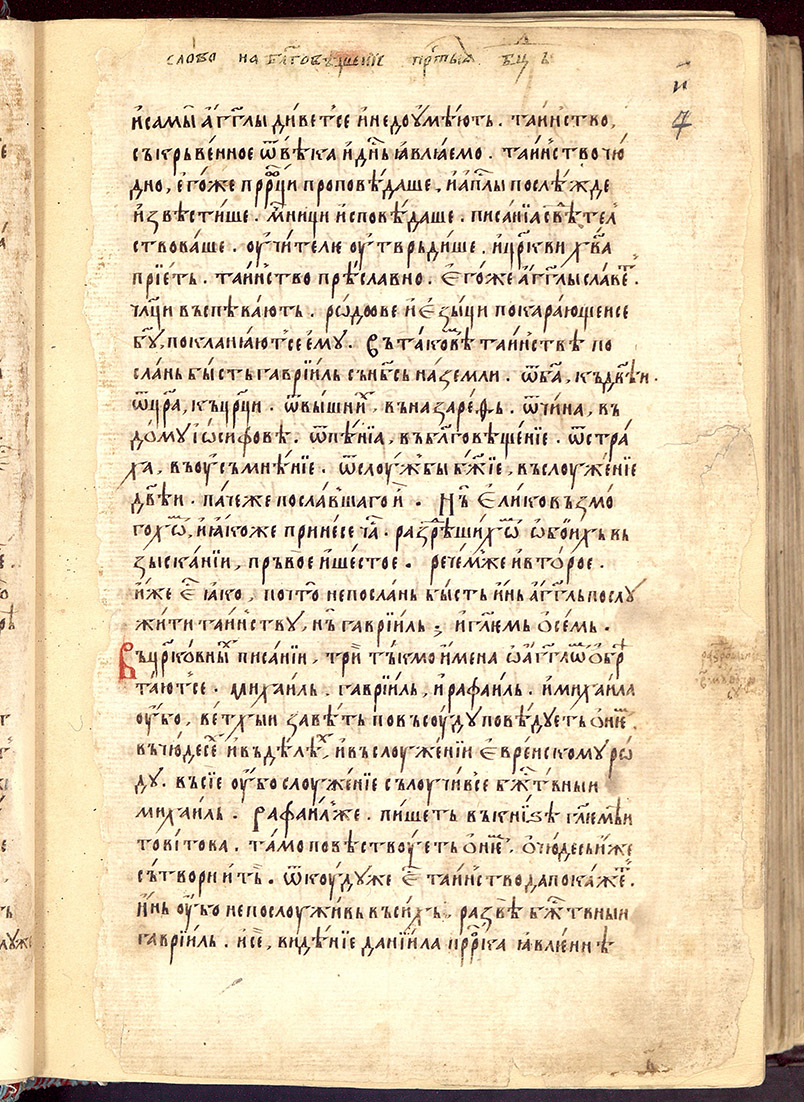 слово на бл҃говѣщенїе прⷭ҇тыѧ бц҃ѣ
и҃
7
и҆самы́ а҆́гг҃лы диветсе и҆недоу҆мѣ́ють. таи́нство,
съкръвѐнное ѿвѣ́ка и҆ дн҃ь ꙗ҆влꙗ́емо. таи́нство чю́
дно, е҆го́же прⷪ҇рци проповѣ́даше, и҆ а҆пⷭ҇лы послѣ́жде
и҆звѣсти́ше. мⷱ҇ници и҆сповѣ́даше. писа́нїа свѣ́тел
ствова́ше. оу҆чи́телїе оу҆твръди́ше. и҆ црⷦ҇ви хв҃а
прїе́ть. таи́нство прѣ́славно. е҆го́же а҆гг҃лы сла́веⷮ.
чл҃ци въспѣва́ють. рѡ́дове и҆ е҆зы́ци покара́ющеисе
бг҃у, покланꙗ́ютсе е҆му. въ тако́вѣ таи́нствѣ по
сла́нь бы́сть гаврїи́ль съ нб҃сь на зе́мли. ѿ бг҃а, къ дв҃ѣи.
ѿ цр҃а, къ црⷬ҇ци. ѿ вы́шниⷯ, въ назаре́ѳь. ѿ чи́на, въ
до́му і҆ѡ́сифовѣ. ѿ пѣ́нїа, въ бл҃говѣще́нїе. ѿ стра́
ха, въ оу҆съмнѣ́нїе. ѿ слоу́жбы бж҃їе, въ слоуже́нїе
дв҃ѣи. па́че же посла́вшаго и҆̀. Нъ̀ е҆ли́ко възмо
гохѡⷨ, и҆ ꙗ҆́коже прине́се чⷭ҇а. разрѣши́хѡⷨ ѡ҆бои́хъ вь
зыска́нїи, пръ́вое и҆ ше́стое. рече́мже и҆ вто́рое.
и҆́же еⷭ҇ ꙗ҆́ко, почто̀ непосла́нь бы́сть и҆́нь а҆́гг҃ль послу
жи́ти таи́нству, нъ̀ гаврїи́ль; и҆ гл҃емь ѻ҆се́мь.
Въ црⷦ҇о́вныⷯ писа́нїи, трѝ тъ́кмо и҆мена ѡ҆ а҆́гг҃лѡⷨ ѻ҆брѣ
та́ютсе. михаи́ль. гаврїи́ль, и҆ рафаи́ль. и҆ михаи́ла
оу҆́бо, ве́тхыи завѣ́ть повъсоу́ду повѣ́дуеть ѻ҆ниⷨ.
въ чюдесе́ⷯ и҆ въ дѣ́лѣⷯ, и҆ въ слоуже́нїи е҆вре́искому рѡ́
ду. въ сїе оу҆́бо слоуже́нїе сълоучи́в се бжⷭ҇твныи
михаи́ль. рафаи́л же. пи́шеть въ кни́ѕѣ гл҃емѣи
тови́това. та́мо повѣствоу́еть ѻ҆ниⷨ. ѻ҆чюдесы́ и҆же
сътвори и҆ тъ̀. ѿкоуду же еⷭ҇ таи́нство да пока́жеⷮ.
и҆́нь оу҆́бо непослоужи́вь въ сихъ, ра́звѣ бжⷭ҇твныи
гаврїи́ль. и҆ сѐ, видѣ́нїе данїи́ла прⷪ҇рка ꙗ҆вле́ни ѣ